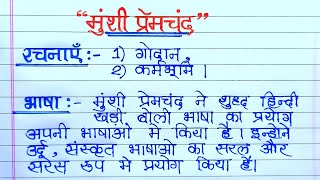 “मुंशी प्रेमचंद”
रचनाएँ:- 1) गोदान,
2) कर्मभूमि।
भाषा:- मुंशी प्रेमचंद ने शुद्ध हिन्दी
खड़ी बोली भाषा का प्रयोग
अपनी भाषाओं मे किया है। इन्होने
उर्दू, संस्कृत भाषाओं का सरल और
सरस रूप मे प्रयोग किया है।